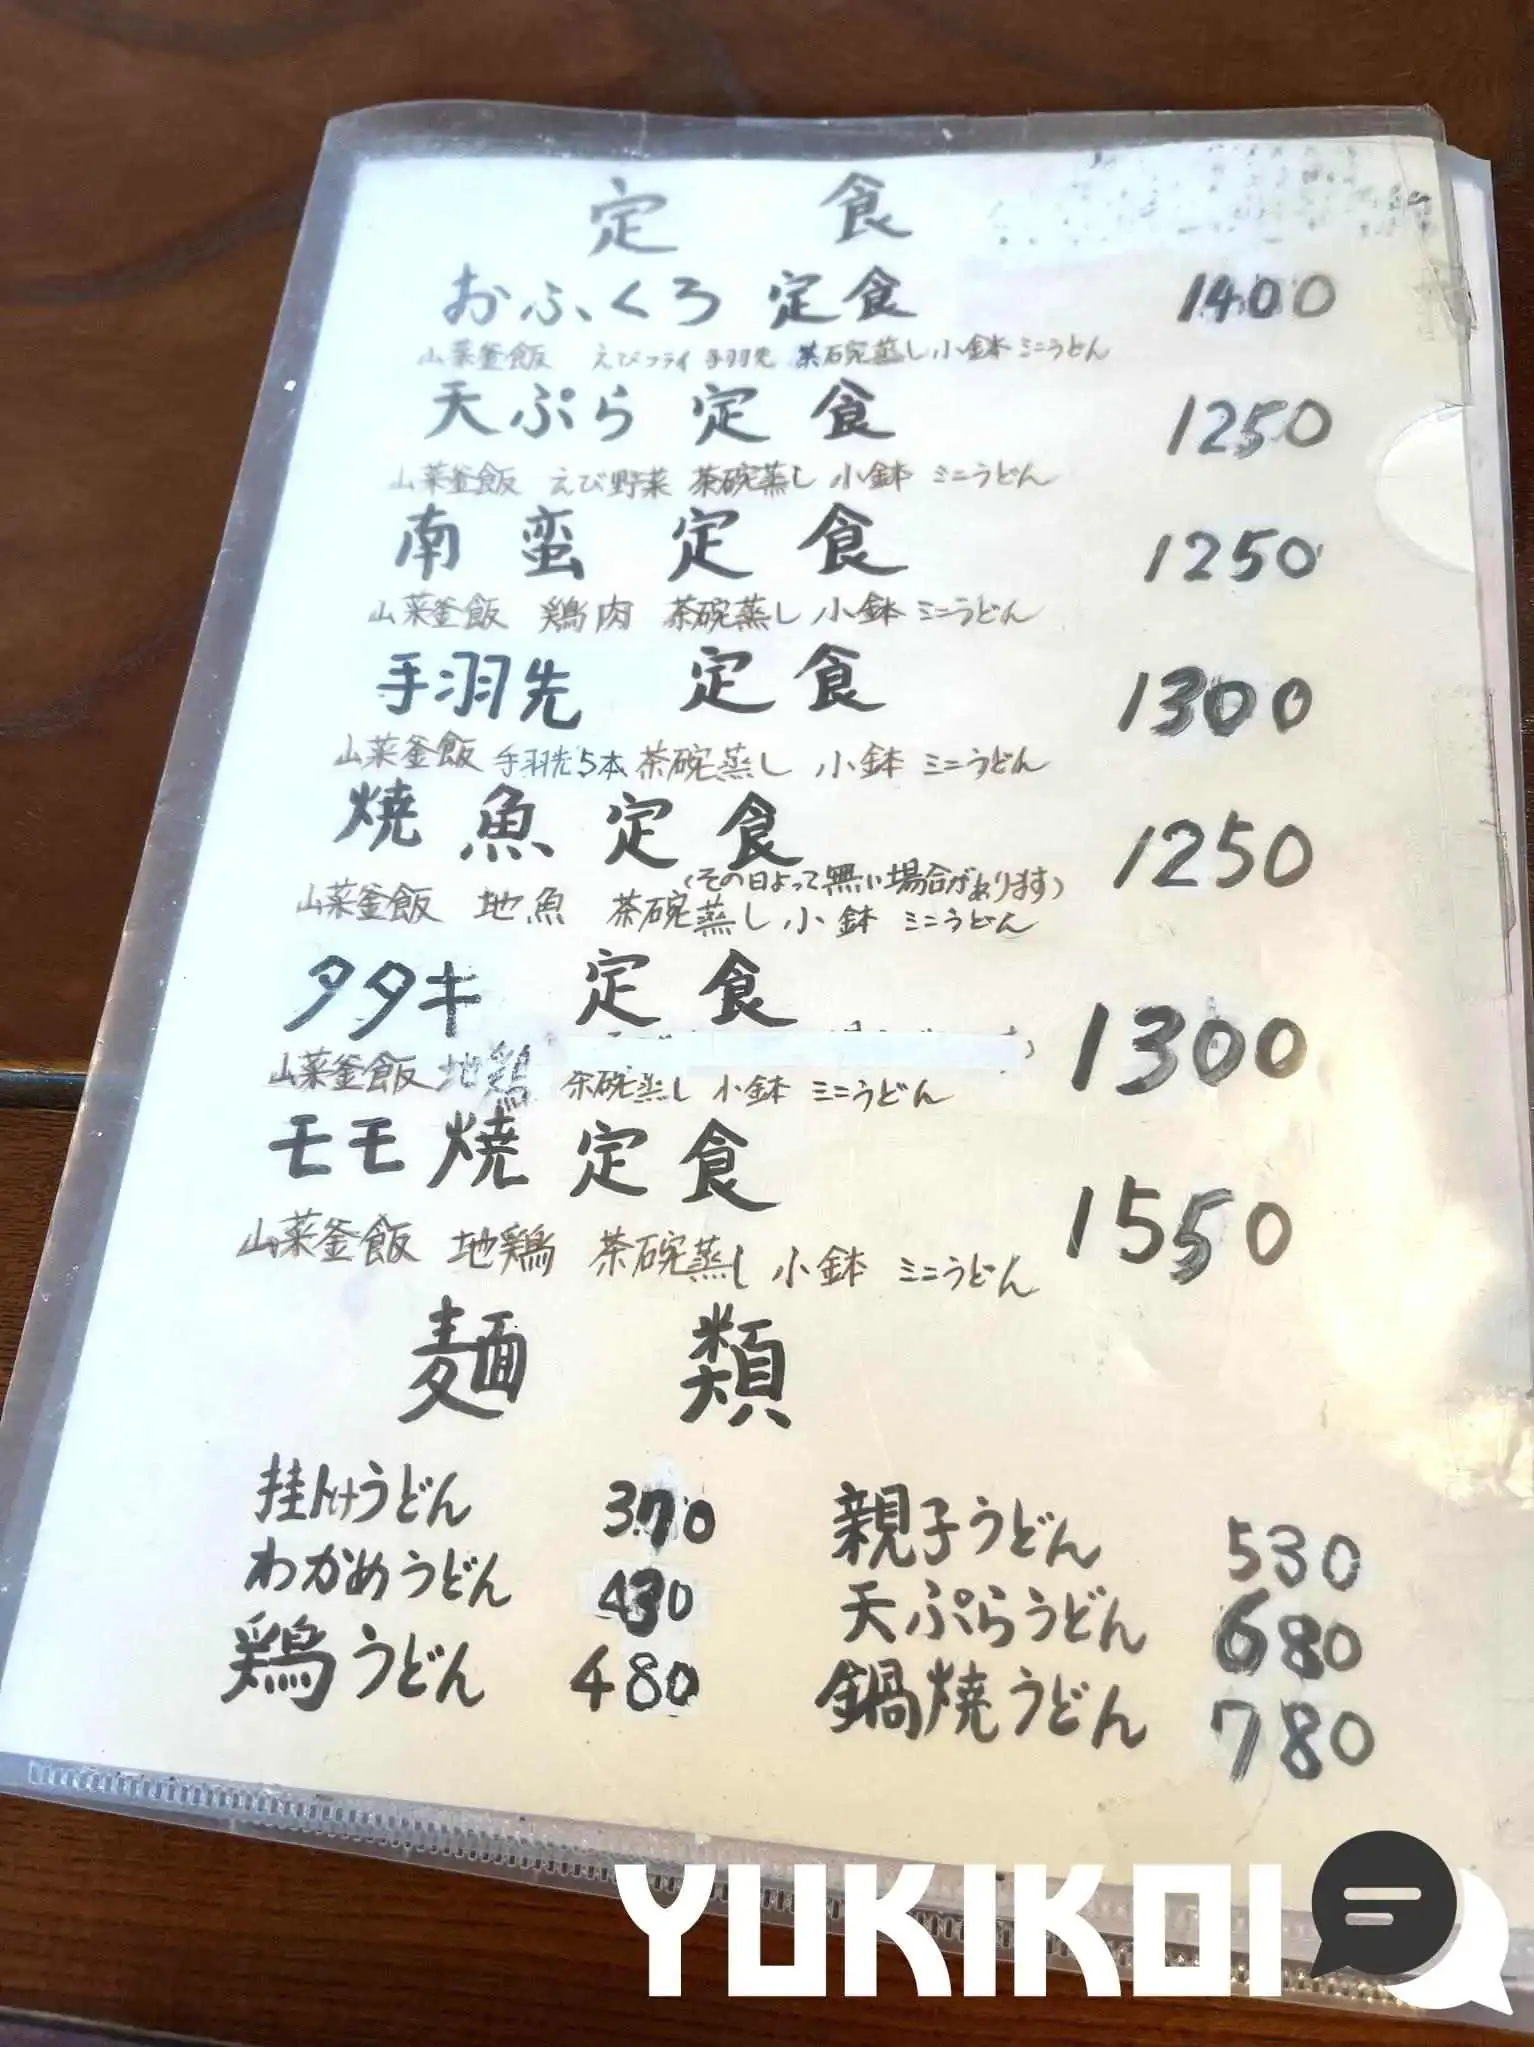 定食
おふくろ 定食 1400
山菜釜飯 えびフライ 手羽先 茶碗蒸し 小鉢 ミニうどん
天ぷら 定食 1250
山菜釜飯 えび野菜 茶碗蒸し 小鉢 ミニうどん
南蛮 定食 1250
山菜釜飯 鶏肉 茶碗蒸し 小鉢 ミニうどん
手羽先 定食 1300
山菜釜飯 手羽先5本 茶碗蒸し 小鉢 ミニうどん
焼魚定食 1250
(その日よって無い場合があります)
山菜釜飯 地魚 茶碗蒸し 小鉢 ミニうどん
タタキ 定食 1300
山菜釜飯 地鶏 茶碗蒸し 小鉢 ミニうどん
モモ焼定食 1550
山菜釜飯 地鶏 茶碗蒸し 小鉢 ミニうどん
麺類
掛けうどん 370
わかめうどん 430
鶏うどん 480
親子うどん 530
天ぷらうどん 680
鍋焼うどん 780
YUKIKOI